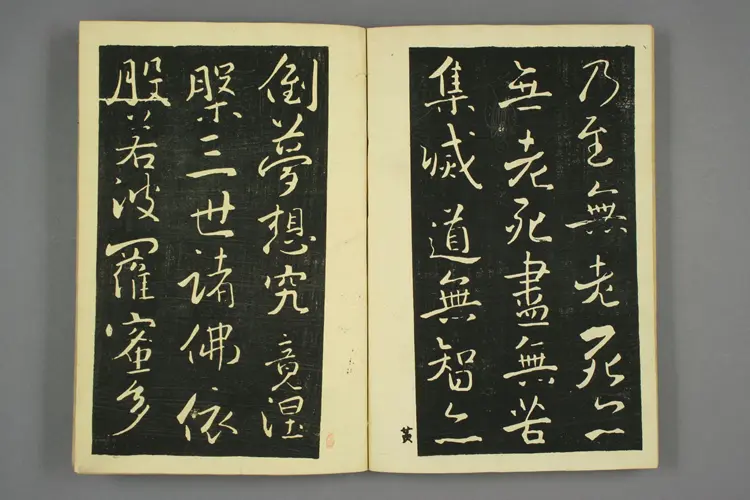 乃至無老死亦
無老死盡無苦
集滅道無智亦
倒夢想究竟涅
槃三世諸佛依
般若波羅蜜多